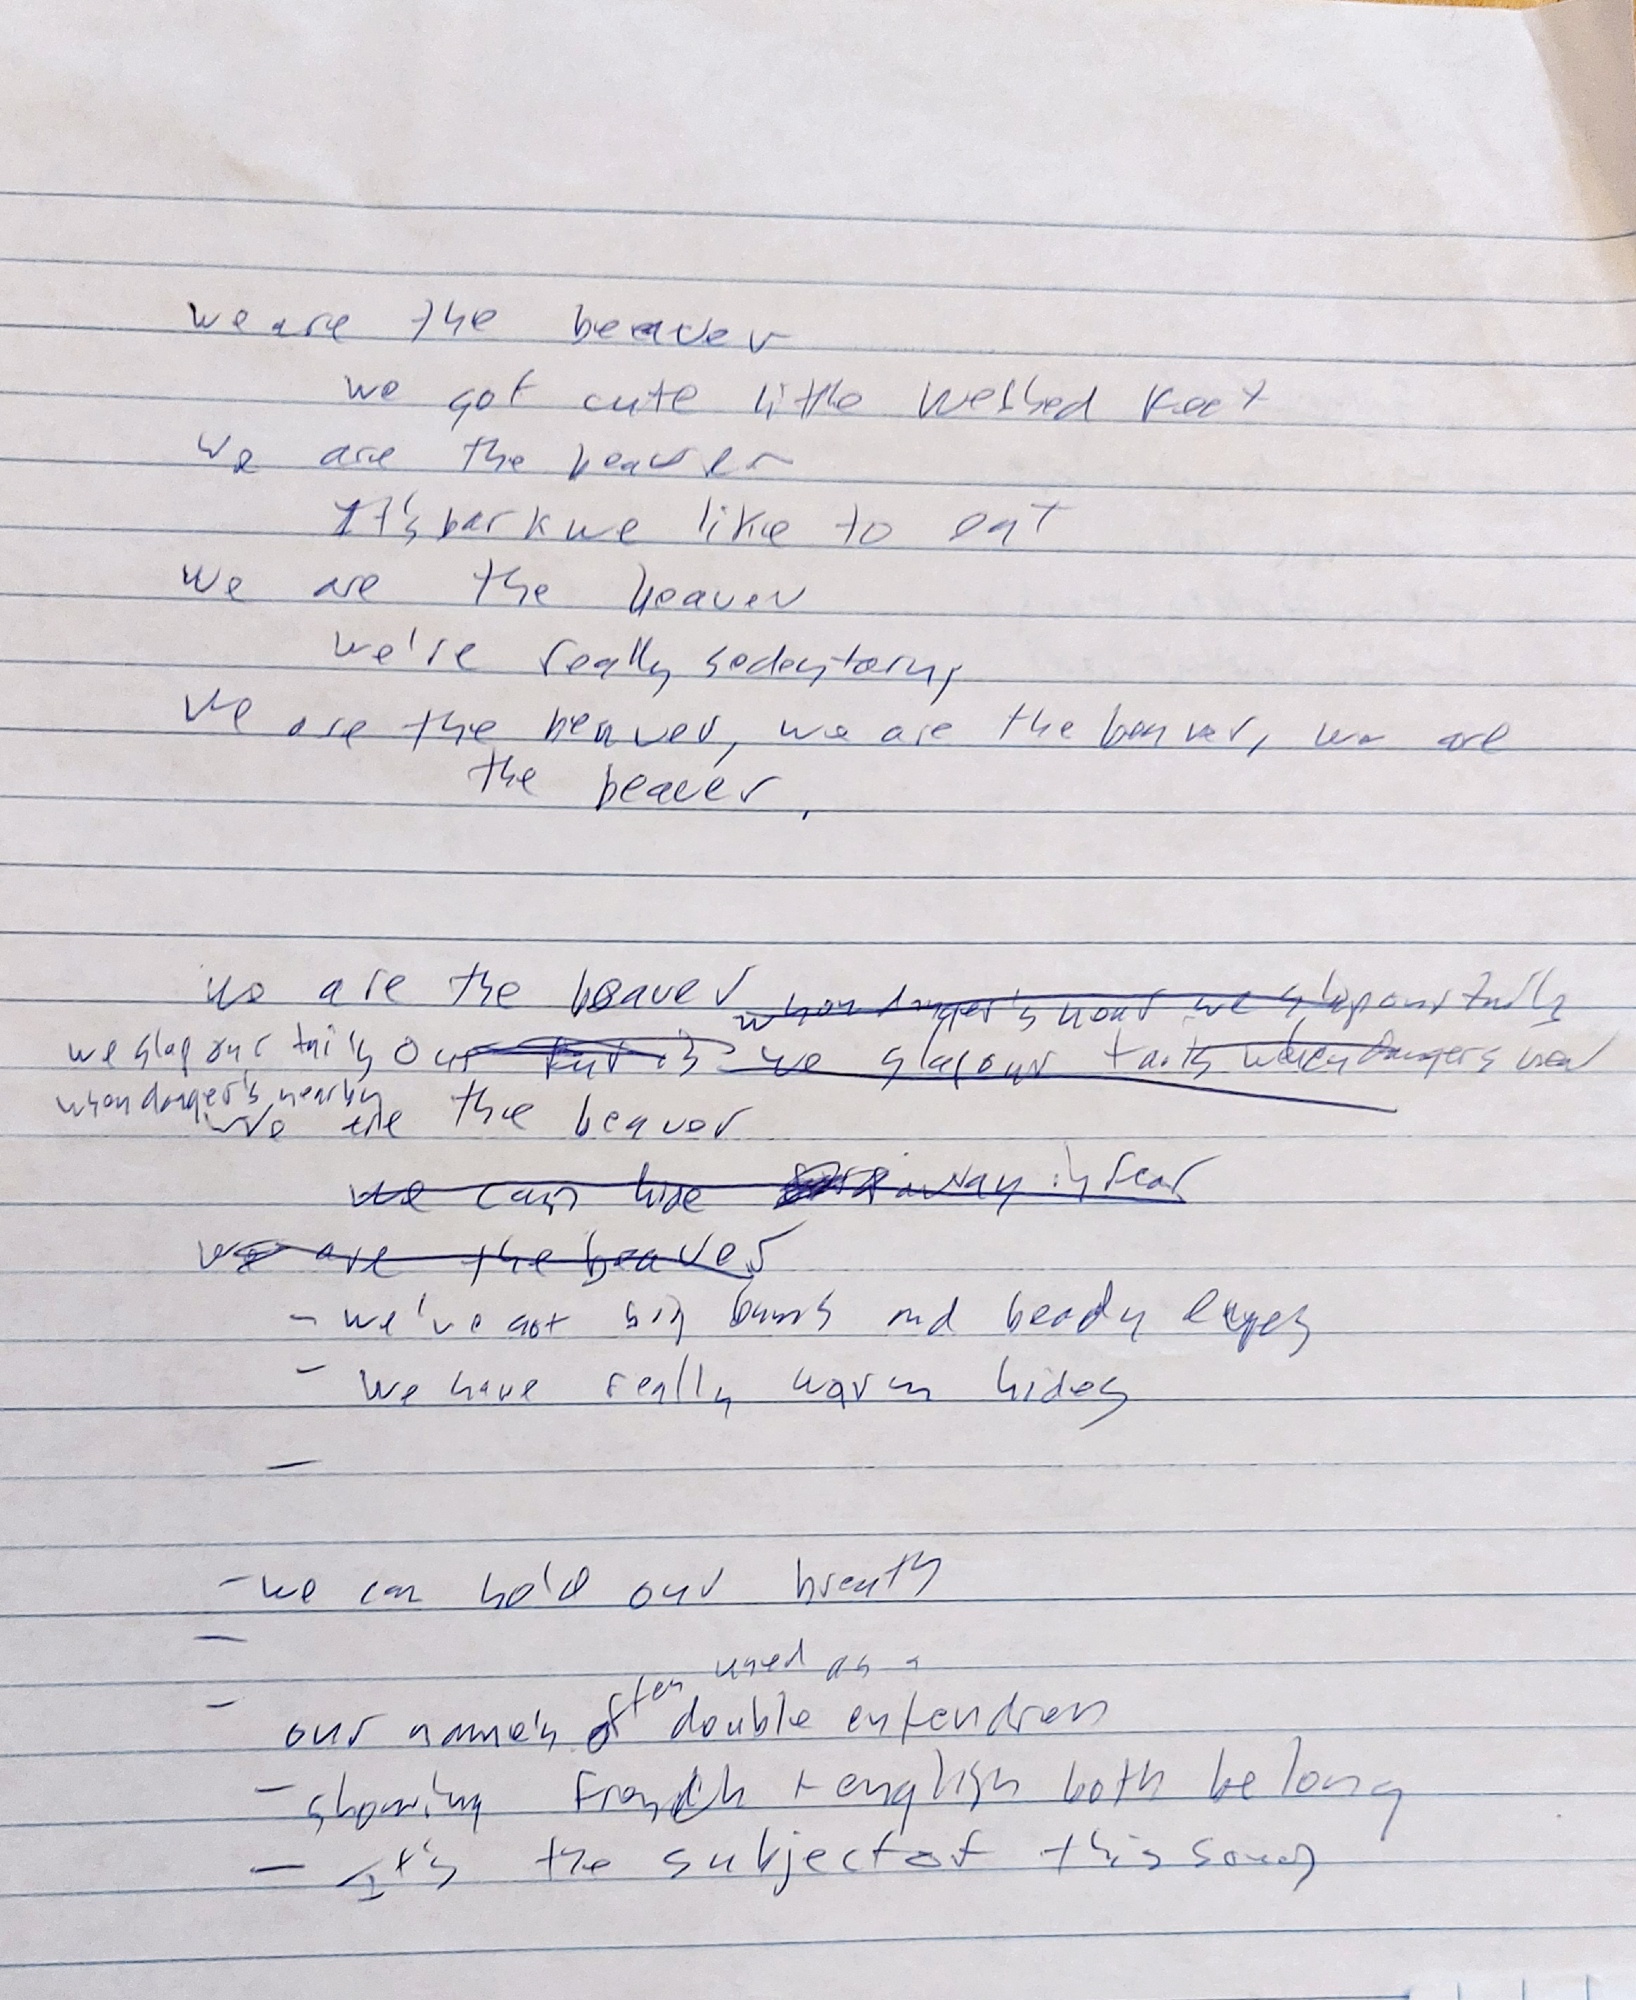 we are the beaver
we got cute little webbed feet
we are the beaver
It's bark we like to eat
we are the beaver
we're really sedentary
we are the beaver, we are the beaver, we are
the beaver,
we are the beaver when danger's near we slap our tails
we slap our tails Our we slap our tails when dangers near
when danger's nearby
we are the beaver
we can hide away in fear
we are the beaver
- we've got big bums and beady eyes
- we have really warm hides
-
- we can hold our breath
-
often used as a
- our name's double entendren
- showing French + english both belong
- It's the subject of this song